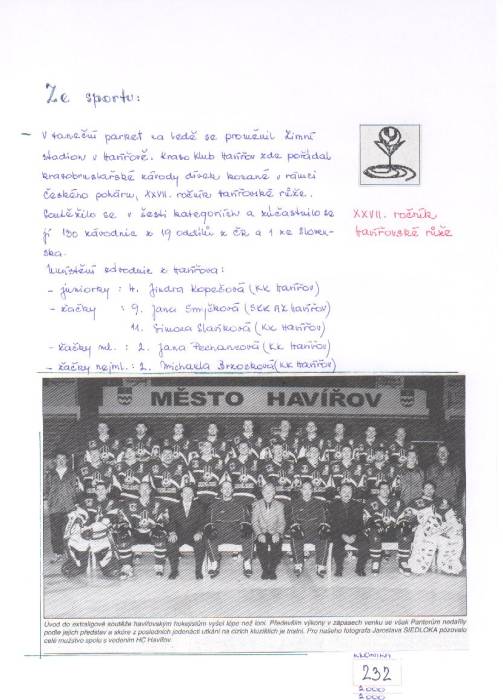 Ze sportu:
– V taneční parket na ledě se proměnil Zimní
stadion v Havířově. Kraso Klub Havířov zde pořádal
krasobruslařské závody dívek konané v rámci
českého poháru, XXVII. ročník havířovské růže.
Soutěžilo se v šesti kategoriích a zúčastnilo se
jí 130 závodnic z 19 oddílů z ČR a 1 ze Sloven-
ska.
XXVII. ročník
havířovské růže
Umístění závodnic z Havířova:
– juniorky : 4. Jindra Kopečová (KK Havířov)
– žačky : 9. Jana Smyčková (SKK AZ Havířov)
11. Simona Slaníková (KK Havířov)
– žačky ml. : 2. Jana Pechancová (KK Havířov)
– žačky nejml.: 2. Michaela (KK Havířov)
MĚSTO HAVÍŘOV
Úvod do extraligové soutěže havířovským hokejistům vyšel lépe než loni. Především výkony v zápasech venku se však Panterům nedařily
podle jejich představ a skóre z posledních jedenácti utkání na cizích kluzištích je tristní. Pro našeho fotografa Jaroslava SIEDLOKA pózovalo
celé mužstvo spolu s vedením HC Havířov.
KRONIKA
232
2000
2000